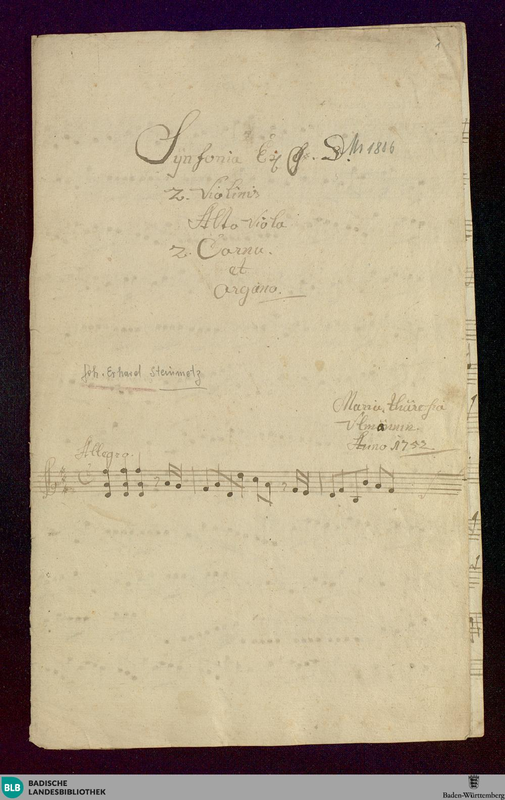 1
Synfonia Ex D. Ms 1816
2. Violinis
Alto viola
2. Cornu.
et
Organo.
Joh. Erhard Steinmetz
Maria
Anno 1752
Allegro
BLB BADISCHE
LANDESBIBLIOTHEK
Baden-Württemberg